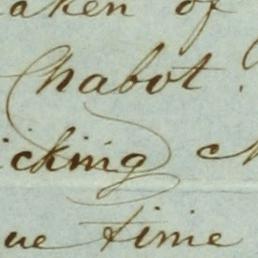 aken of
Chabot.
icking
ue time